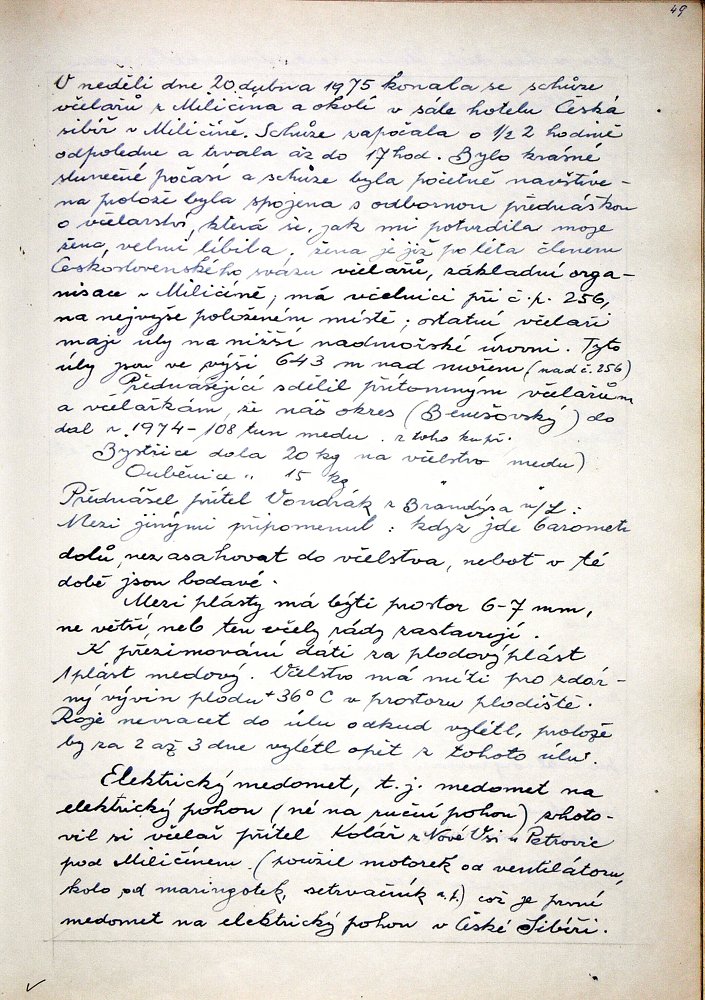 49
V neděli dne 20. dubna 1975 konala se schůze
včelařů z Miličína a okolí v sále hotelu Česká
sibiř v Miličíně. Schůze započala o 1/2 2 hodině
odpoledne a trvala až do 17 hod. Bylo krásné
slunečné počasí a schůze byla početně navštíve-
na polože byla spojena s odbornou přednáškou
o včelarství, která se, jak mi potvrdila moje
žena, velmi líbila, žena je již po léta členem
Československého svazu včelařů, základní orga-
nisace v Miličíně; má včelnici při č.p. 256,
na nejvýše položeném místě; ostatní včelaři
mají úly na nižší nadmořské úrovni. Tyto
úly jsou ve výši 643 m nad mořem (nad č. 256)
Přednášející sdělil přítomným včelařům
a včelařkám, že náš okres (Benešovský) do
dal r. 1974 - 108 tun medu. z toho ku př.
Bystřice dala 20 kg na včelstvo medu)
Ouběnice " 15 kg " "
Přednášel přítel Vondrák z Brandýsa n/L:
Mezi jinými připomenul: když jde barometr
dolů, nezasahovat do včelstva, nebot v té
době jsou bodavé.
Mezi plásty má býti prostor 6-7 mm,
ne větší, neb ten včely rády zastavují.
K přezimování dáti za plodový plást
1 plást medový. Včelstvo má míti pro zdár-
ný vývin plodu + 36° C v prostoru plodiště.
Roje nevracet do úlu odkud vylétl, polože
by za 2 až 3 dne vylétl opět z tohoto úlu.
Elektrický medomet, t.j. medomet na
elektrický pohon (né na ruční pohon) zhoto-
vil si včelař přítel Kolář z Nové Vsi u Petrovic
pod Miličínem. (použil motorek od ventilátoru,
kolo od maringotek, setrvačník a.t.) což je první
medomet na elektrický pohon v České Sibiři.